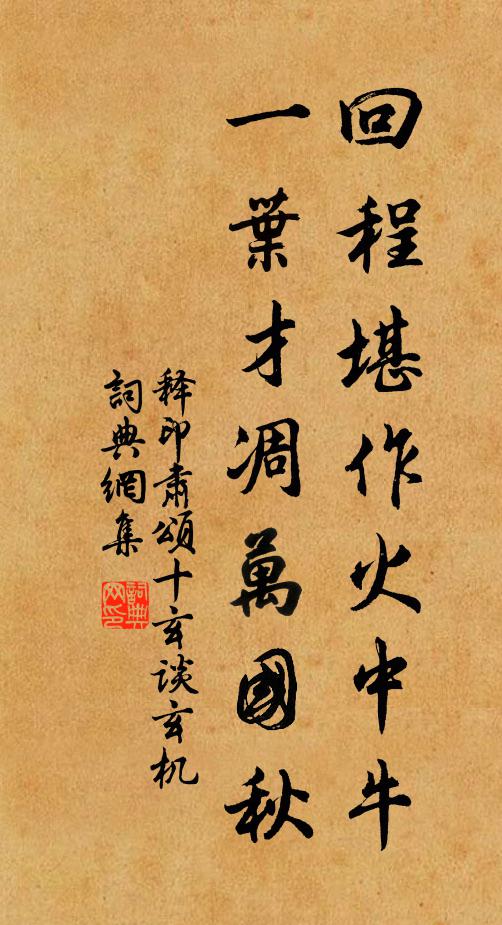 回程堪作火中牛
一葉才凋萬國秋
释印肅頌十玄谈玄机
詞典網集
詞典网印